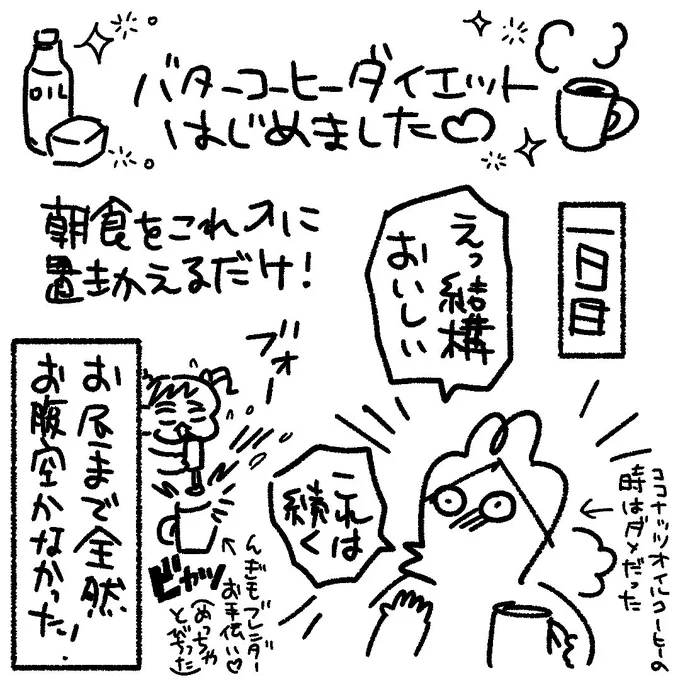 OIL
バターコーヒーダイエット
はじめました♡
朝食をこれ1本に
置き換えるだけ!
一日目
えっ結構
おいしい
ココナッツオイルコーヒーの
時はダメだった
これは
続く
ブォー
ビャッ
んぎもブレンダー
お手伝い♡
(めっちゃ
とびちった)
お昼まで全然
お腹空かなかった!